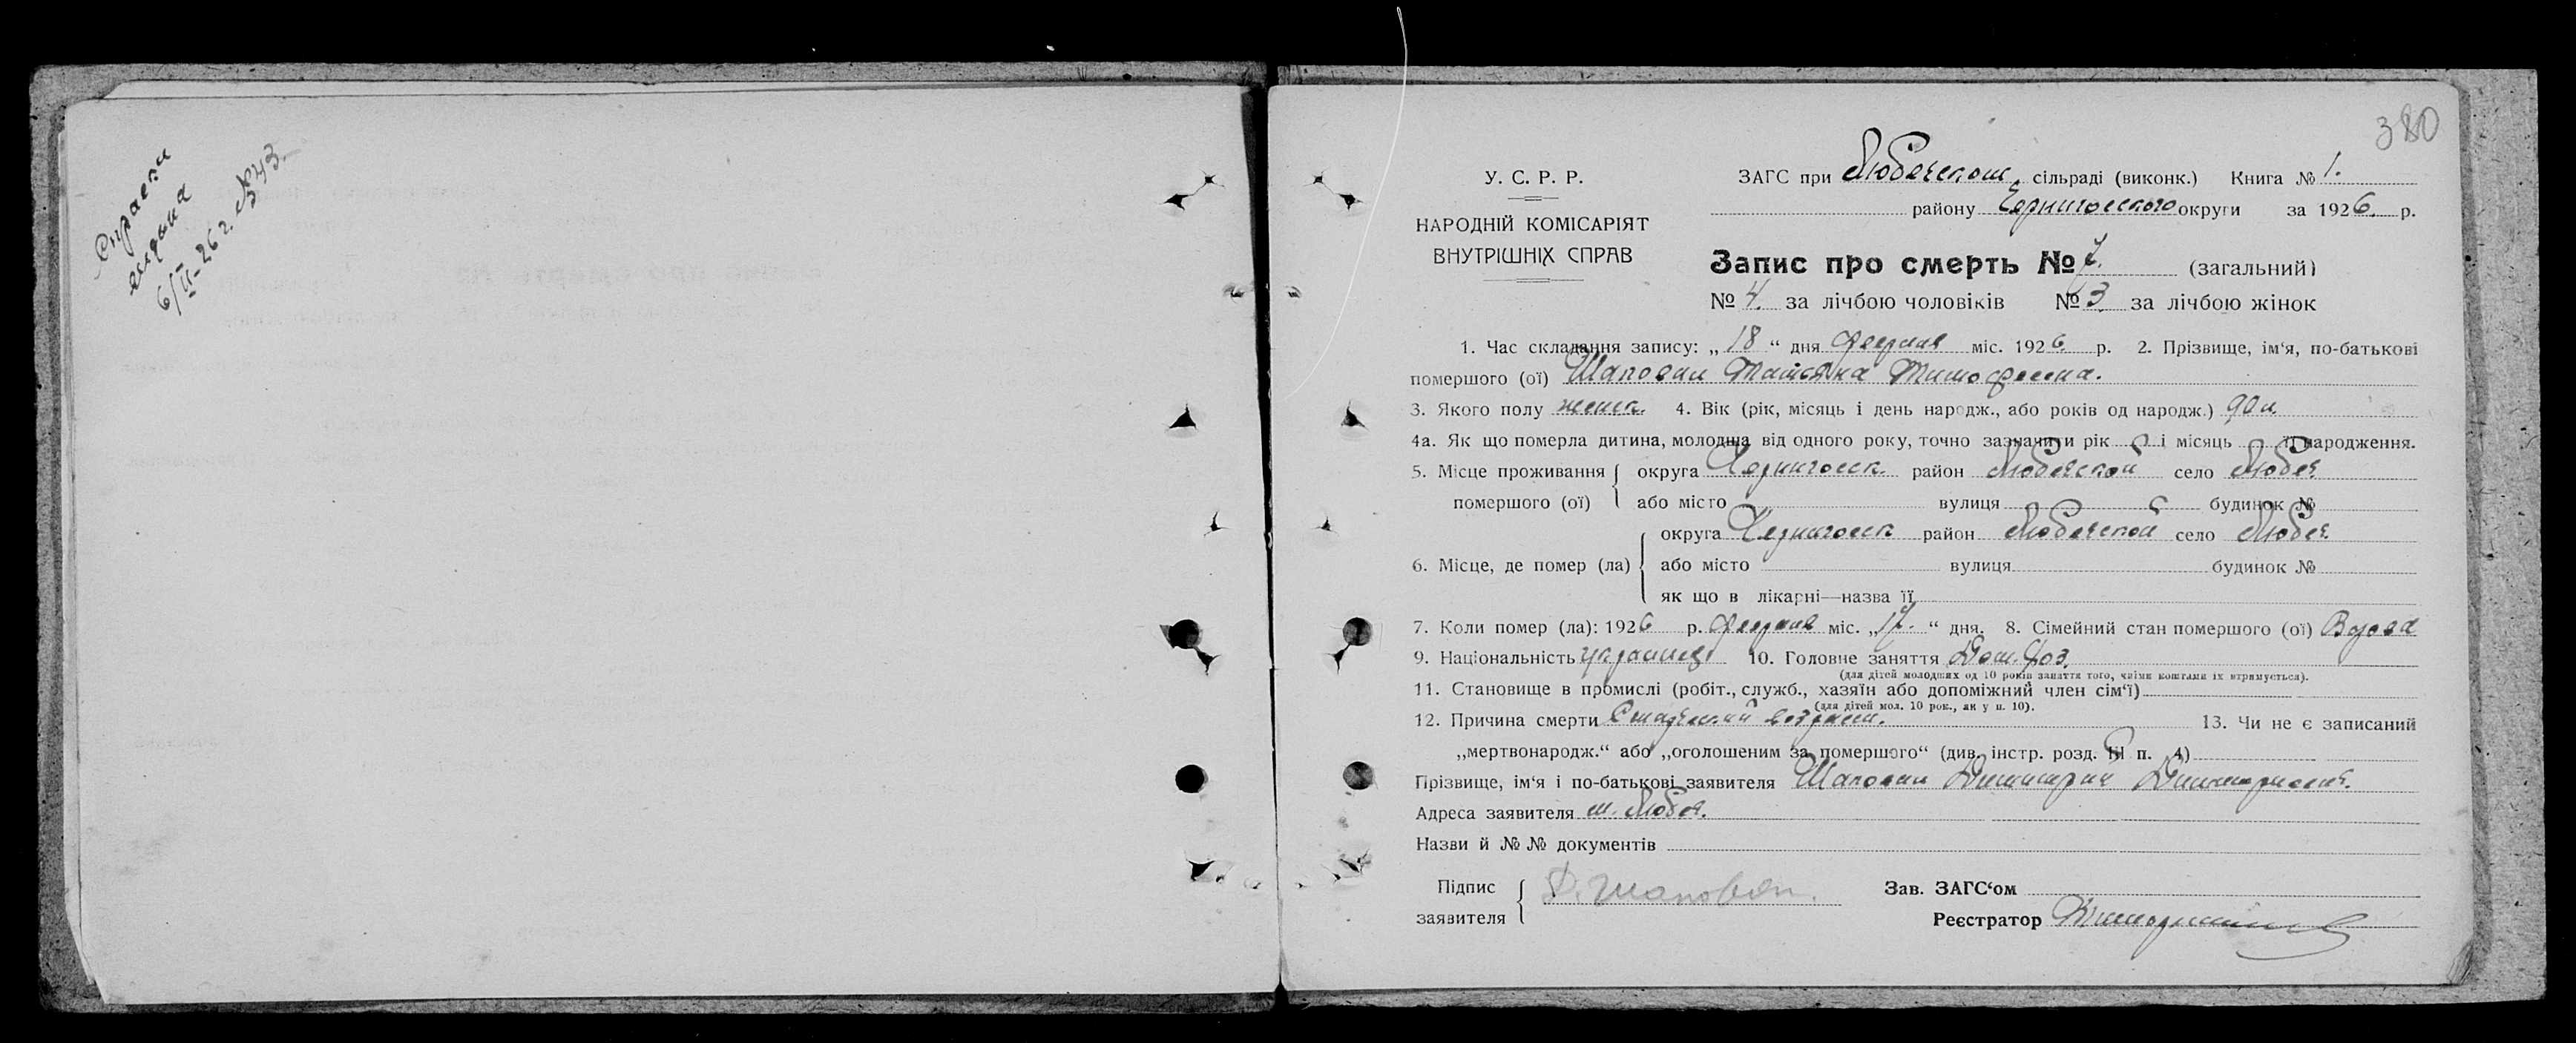 Справки
выдана
6/II-26 г. №43.
380
У. С. Р. Р.
НАРОДНІЙ КОМІСАРІЯТ
ВНУТРІШНІХ СПРАВ
ЗАГС при Любечском сільраді (виконк.) Книга № 1.
району Черниговского округи за 1926 р.
Запис про смерть № 7. (загальний)
№ 4. за лічбою чоловіків № 3. за лічбою жінок
1. Час складання запису: „18“ дня февраля міс. 1926. р. 2. Прізвище, ім‘я, по-батькові
помершого (ої) Шаповал Татьяна Тимофеевна.
3. Якого полу женск. 4. Вік (рік, місяць і день народж., або років од народж.) 90 л.
4а. Як що померла дитина, молодша від одного року, точно зазначити рік і місяць її народження.
5. Місце проживання округа Черниговск. район Любечской село Любеч
помершого (ої) або місто вулиця будинок №
округа Черниговск район Любечской село Любеч
6. Місце, де помер (ла) або місто вулиця будинок №
як що в лікарні—назва її
7. Коли помер (ла): 1926 р. февраля міс. „17.“ дня. 8. Сімейний стан помершого (ої) Вдова
9. Національність 10. Головне заняття Дом. Хоз.
(для дітей молодших од 10 років заняття того, чиїми коштами їх втримується).
11. Становище в промислі (робіт., служб., хазяїн або допоміжний член сім‘ї)
(для дітей мол. 10 рок., як у п. 10).
12. Причина смерти Старческий возраст. 13. Чи не є записаний
„мертвонародж.“ або „оголошеним за помершого“ (див. інстр. розд. III п. 4)
Прізвище, ім‘я і по-батькові заявителя Шаповал Димитрий Димитриевич.
Адреса заявителя м. Любеч.
Назви й № № документів
Підпис Д. Шаповал. Зав. ЗАГС‘ом
заявителя Реєстратор